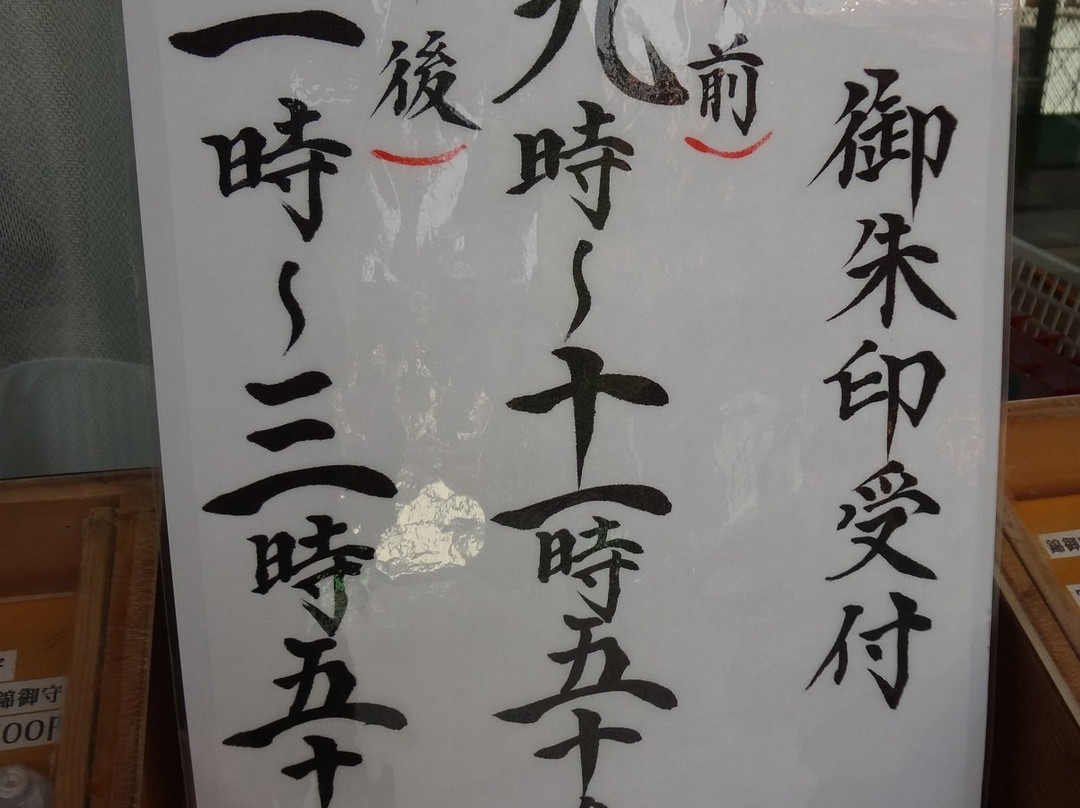 御朱印受付
前
九時〜十一時五十
後
一時〜三時五十
錦御守
錦御